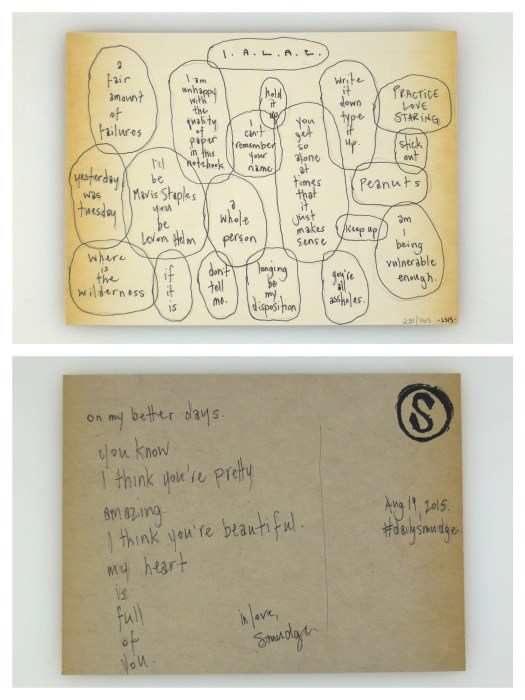 I. A. L. A. Z.
a
fair
amount
of
failures
I am
unhappy
with
the
quality
of
paper
in this
notebook
hold
it
up
I
can't
remember
your
name
you
get
so
alone
at
times
that
it
just
makes
sense
write
it
down
type
it
up.
PRACTICE
LOVE
STARING
stick
out
Peanuts
yesterday
was
tuesday
I'll
be
Mavis Staples
you
be
Levon Helm
a
whole
person
keep up
am
I
being
vulnerable
enough.
where
is
the
wilderness
if
it
is
don't
tell
me.
longing
be
my
disposition
you're
all
assholes.
231/365 -2015-
on my better days.
you know
I think you're pretty
amazing.
I think you're beautiful.
my heart
is
full
of
you.
in love,
Smudge.
S
Aug. 19, 2015.
#dailysmudge.